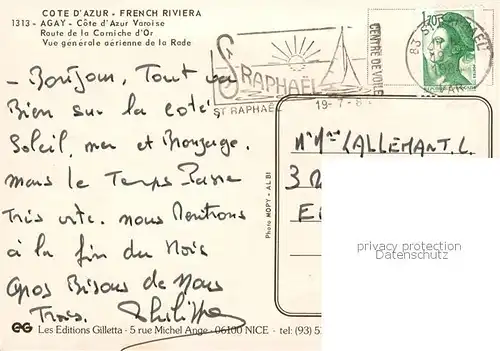 COTE D'AZUR - FRENCH RIVIERA
1313 - AGAY - Côte d'Azur Varoise
Route de la Corniche d'Or
Vue générale aérienne de la Rade
ST RAPHAËL
CENTRE DE VOILE
ST RAPHAËL 19-7-8
83 ST RAPHAEL VAR
1,70
- Bonjour, Tout va
Bien sur la coté,
Soleil, mer et Bronzage.
mais le Temps Passe
Très vite. nous Rentrons
à la fin du Mois
Gros Bisous de Nous
Trois. Philippe
Photo MOPY - ALBI
Mr Mme LALLEMANT.L.
3
E
privacy protection
Datenschutz
EG Les Editions Gilletta - 5 rue Michel Ange - 06100 NICE - tel: (93) 5